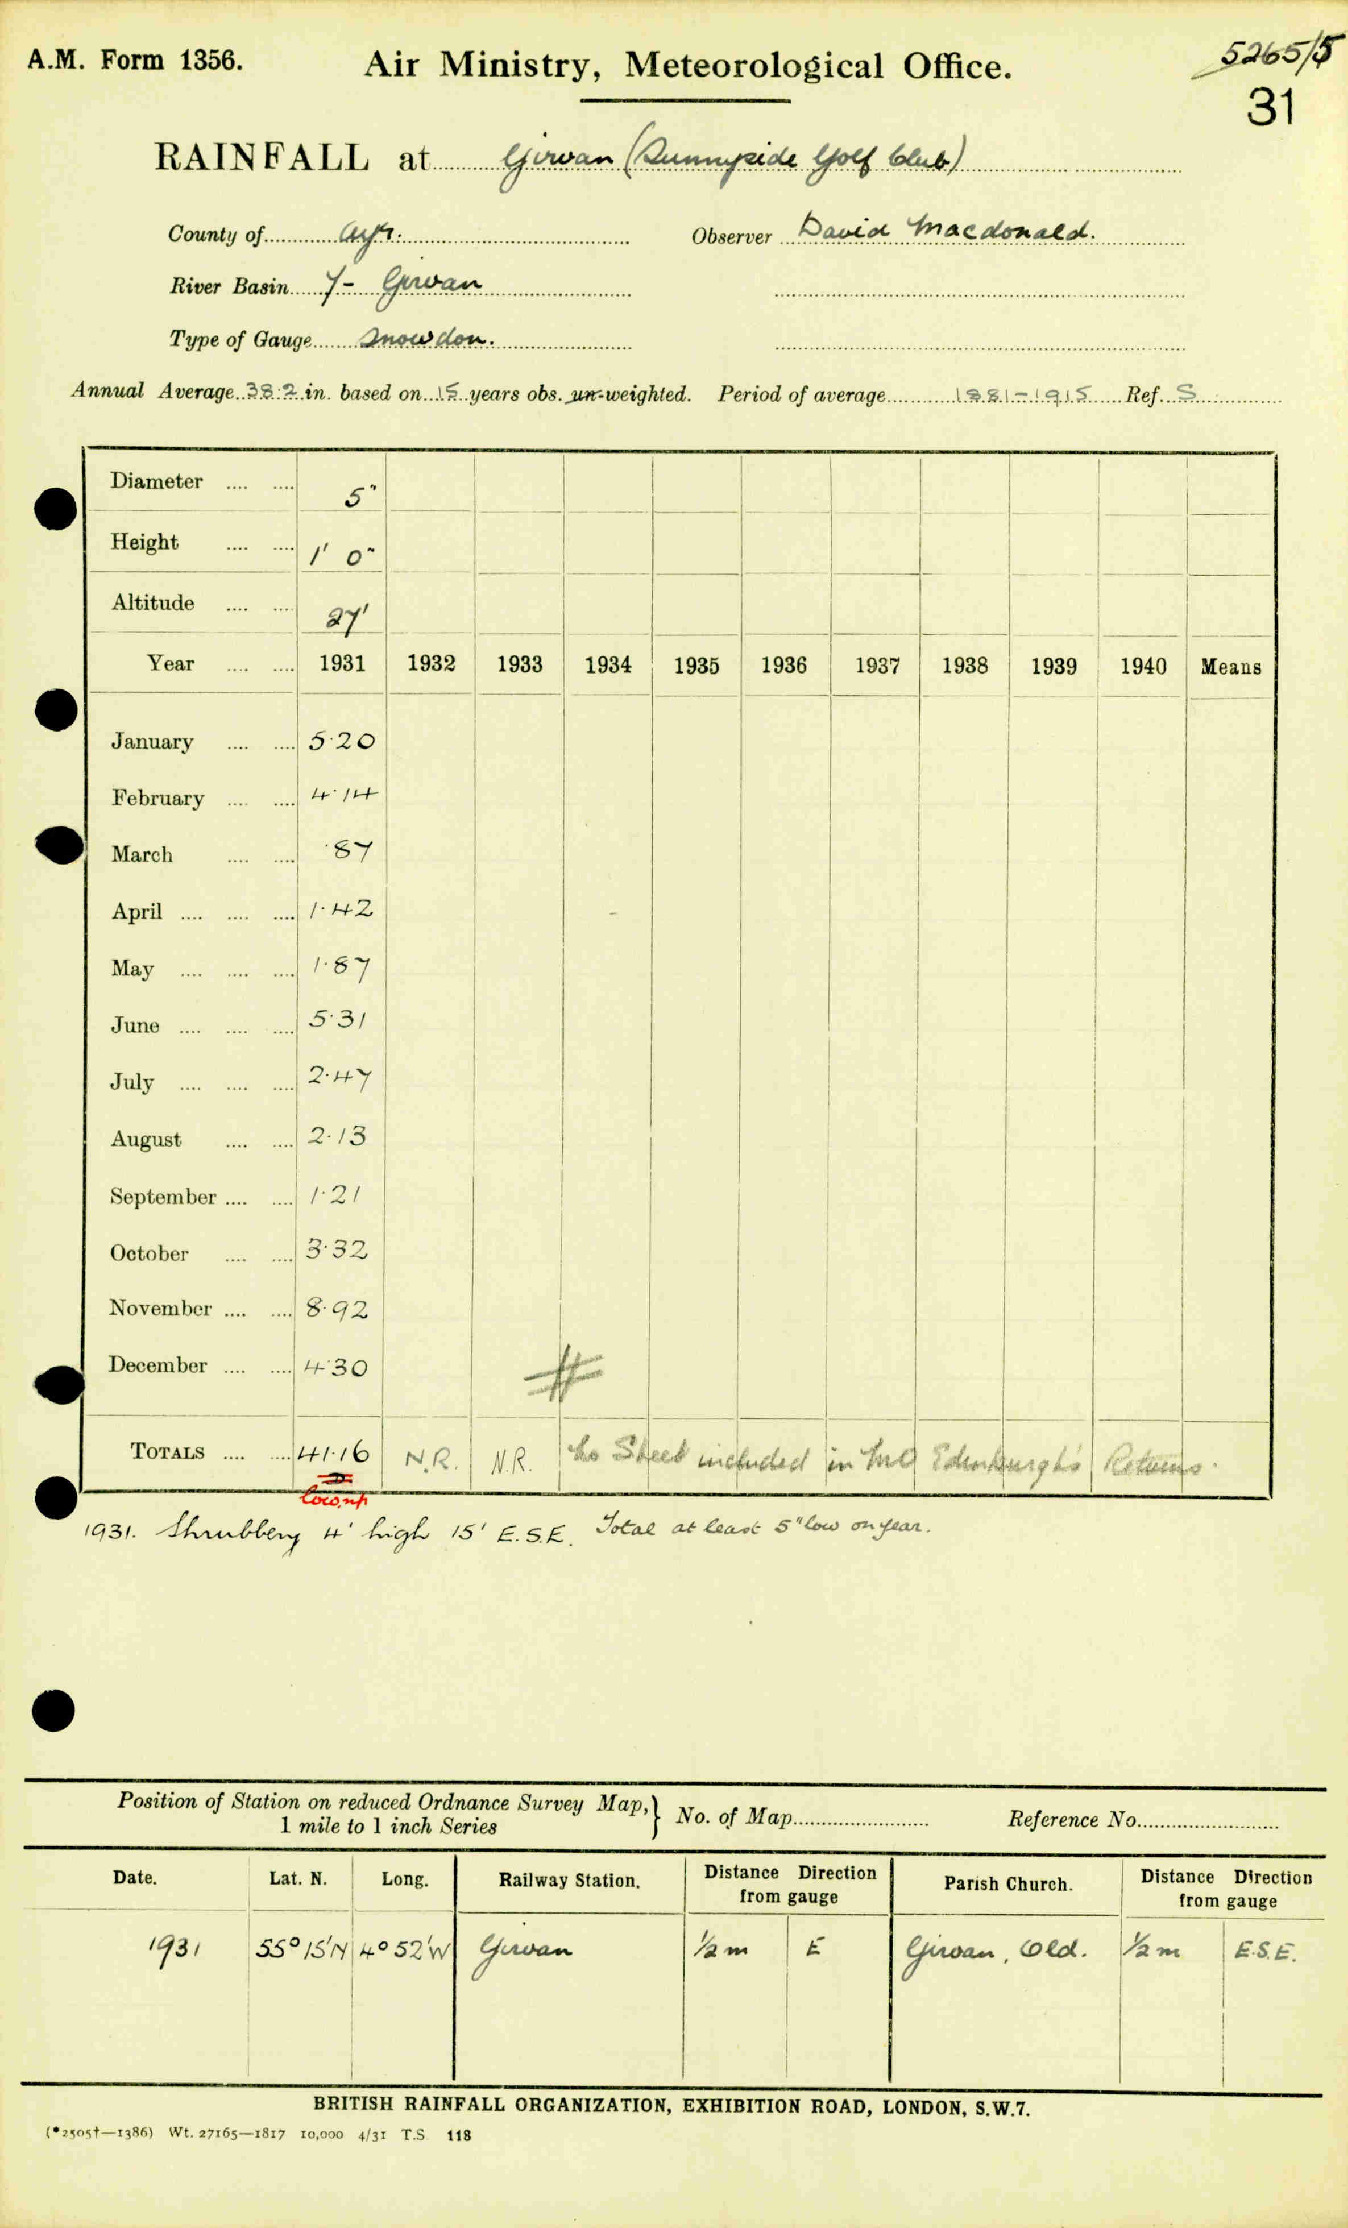 A.M. Form 1356. Air Ministry, Meteorological Office. 5265/5
31
RAINFALL at Girvan (Sunnyside Golf Club)
County of Ayr. Observer David Macdonald.
River Basin Y- Girvan
Type of Gauge Snowdon.
Annual Average 38.2 in. based on 15 years obs. un-weighted. Period of average 1881-1915 Ref. S
Diameter .... .... 5"
Height .... .... 1' 0"
Altitude .... .... 27'
Year .... .... 1931 1932 1933 1934 1935 1936 1937 1938 1939 1940 Means
January .... .... 5.20
February .... .... 4.14
March .... .... .87
April .... .... .... 1.42
May .... .... .... 1.87
June .... .... .... 5.31
July .... .... .... 2.47
August .... .... 2.13
September .... .... 1.21
October .... .... 3.32
November .... .... 8.92
December .... .... 4.30
#
TOTALS .... .... 41.16 N.R. N.R. No Sheet included in MO Edinburgh's Returns.
1931. Shrubbery 4' high 15' E.S.E. Total at least 5" low on year.
Position of Station on reduced Ordnance Survey Map, } No. of Map Reference No.
1 mile to 1 inch Series
Date. Lat. N. Long. Railway Station. Distance Direction from gauge Parish Church. Distance Direction from gauge
1931 55° 15'N 4° 52'W Girvan ½ m E Girvan, Old. ½ m E.S.E.
BRITISH RAINFALL ORGANIZATION, EXHIBITION ROAD, LONDON, S.W.7.
(*2505†—1386) Wt. 27165—1817 10,000 4/31 T.S. 118